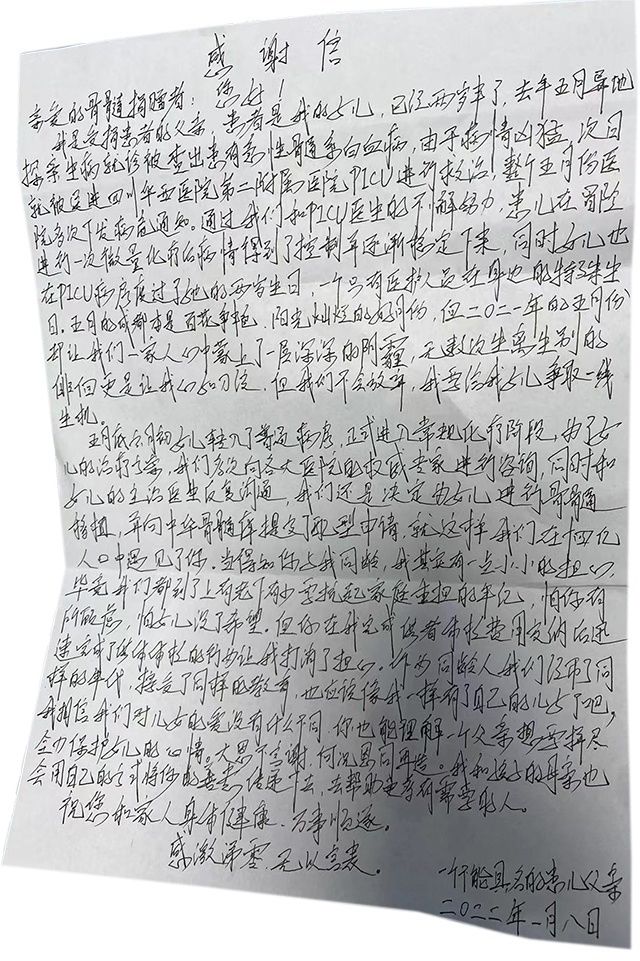 感谢信
亲爱的骨髓捐赠者：您好！
我是受捐患者的父亲，患者是我的女儿，已经两岁半了，去年五月异地
探亲生病就诊被查出患有急性骨髓系白血病，由于病情凶猛，次日
就被送进四川华西医院第二附属医院PICU进行救治，整个五月份医
院多次下发病危通知。通过我们和PICU医生的不懈努力，患儿在冒险
进行一次微量化疗后病情得到了控制并逐渐稳定下来，同时女儿也
在PICU病房度过了她的两岁生日，一个只有医护人员在身边的特殊生
日。五月的成都本是百花争艳、阳光灿烂的好月份，但二〇二一年的五月份
却让我们一家人心中蒙上了一层深深的阴霾，无数次生离死别的
徘徊更是让我心如刀绞，但我们不会放弃，我要给我女儿争取一线
生机。
五月底六月初女儿转入了普通病房，正式进入常规化疗阶段，为了女
儿的治疗方案，我们多次向各大医院的权威专家进行咨询，同时和
女儿的主治医生反复沟通，我们还是决定为女儿进行骨髓
移植，并向中华骨髓库提交了配型申请，就这样我们在十四亿
人口中遇见了你。当得知你与我同龄，我其实有一点小小的担心，
毕竟我们都到了上有老下有小要扛起家庭重担的年纪，怕你有
所顾虑，怕女儿没了希望。但你在我完成供者体检费用交纳后迅
速完成了体检的行为让我打消了担心。作为同龄人我们经历了同
样的年代，接受了同样的教育，也应该像我一样有了自己的儿女了吧，
我相信我们对儿女的爱没有什么不同，你也能理解一个父亲想要拼尽
全力保护女儿的心情。大恩不言谢，何况恩同再造。我和孩子的母亲也
会用自己的方式将你的善意传递下去，去帮助更多有需要的人。
祝您和家人身体健康、万事顺遂。
感激涕零，无以言表。
一个不能具名的患儿父亲
二〇二二年一月八日